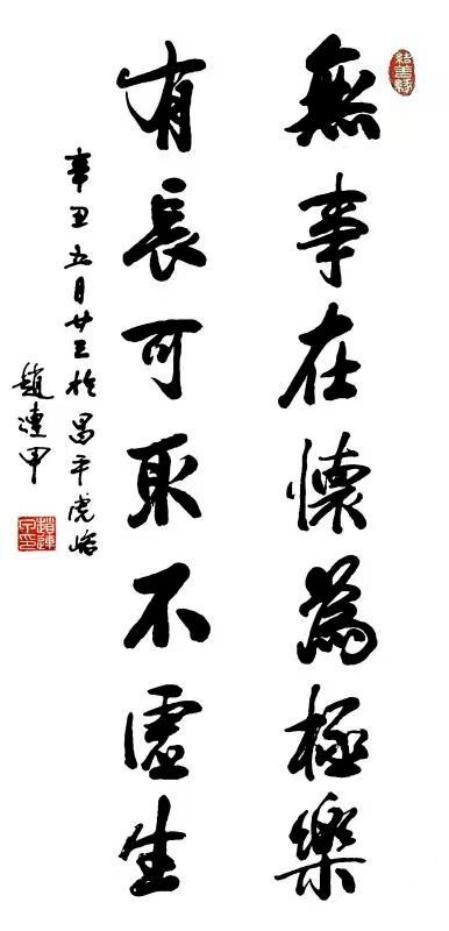 結善緣
無事在懷為極樂
有長可取不虛生
辛丑五月廿三於昌平虎峪
趙連甲
趙連甲印